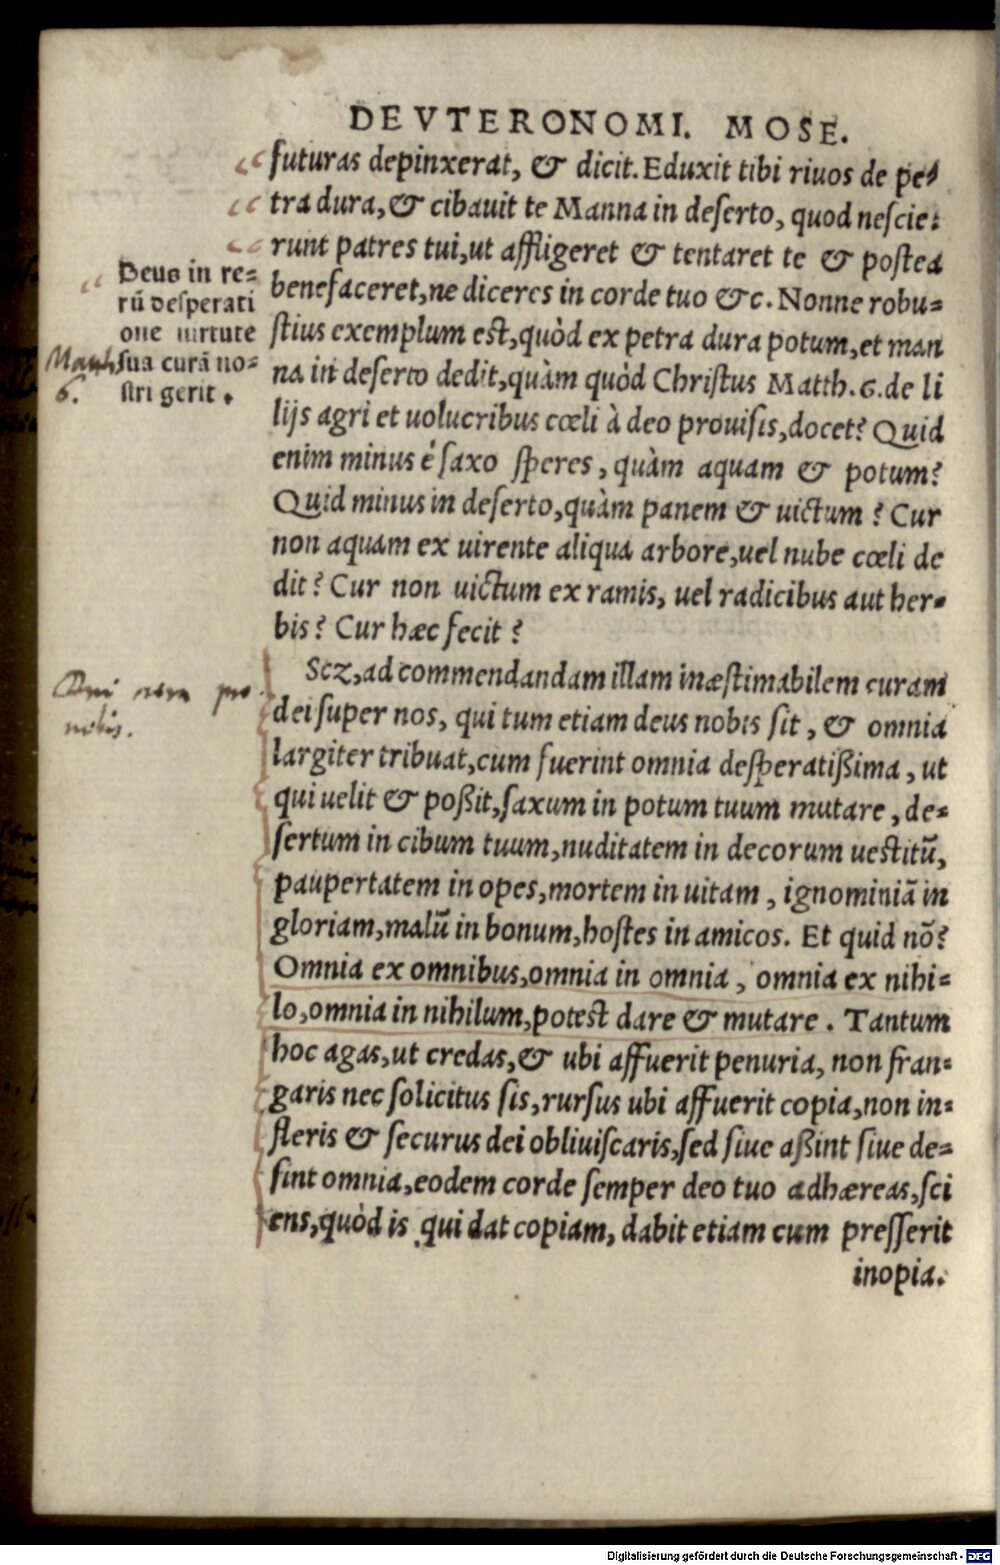 DEVTERONOMI. MOSE.
futuras depinxerat, & dicit. Eduxit tibi riuos de pe-
tra dura, & cibauit te Manna in deserto, quod nescie-
runt patres tui, ut affligeret & tentaret te & postea
benefaceret, ne diceres in corde tuo &c. Nonne robu-
stius exemplum est, quòd ex petra dura potum, et man
na in deserto dedit, quàm quòd Christus Matth. 6. de li
lijs agri et uolucribus cœli à deo prouisis, docet? Quid
enim minus é saxo speres, quàm aquam & potum?
Quid minus in deserto, quàm panem & uictum? Cur
non aquam ex uirente aliqua arbore, uel nube cœli de
dit? Cur non uictum ex ramis, uel radicibus aut her-
bis? Cur hæc fecit?
Deus in re-
rū desperati
one uirtute
sua curā no-
stri gerit.
Matth
6.
Scz, ad commendandam illam inæstimabilem curam
dei super nos, qui tum etiam deus nobis sit, & omnia
largiter tribuat, cum fuerint omnia desperatißima, ut
qui uelit & poßit, saxum in potum tuum mutare, de-
sertum in cibum tuum, nuditatem in decorum uestitū,
paupertatem in opes, mortem in uitam, ignominiā in
gloriam, malū in bonum, hostes in amicos. Et quid nō?
Omnia ex omnibus, omnia in omnia, omnia ex nihi-
lo, omnia in nihilum, potest dare & mutare. Tantum
hoc agas, ut credas, & ubi affuerit penuria, non fran-
garis nec solicitus sis, rursus ubi affuerit copia, non in-
fleris & securus dei obliuiscaris, sed siue aßint siue de-
sint omnia, eodem corde semper deo tuo adhæreas, sci
ens, quòd is qui dat copiam, dabit etiam cum presserit
inopia.
pro
nobis.
Digitalisierung gefördert durch die Deutsche Forschungsgemeinschaft - DFG